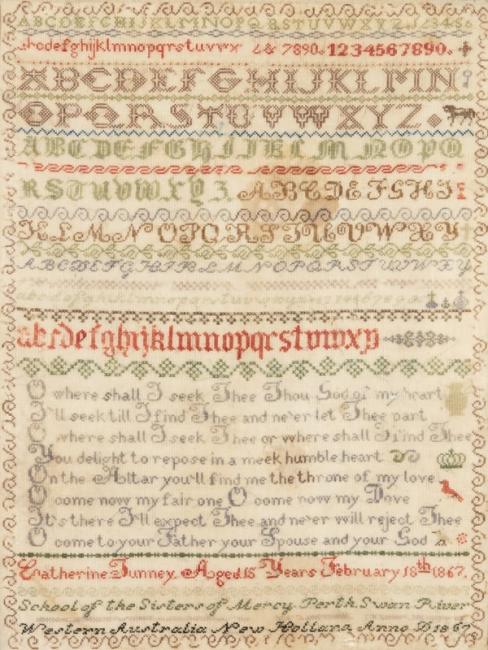 ABCDEFGHIJKLMNOPQRSTUVWXYZ 123456
abcdefghijklmnopqrstuvwx z& 7890. 1234567890.
ABCDEFGHIJKLMN
OPQRSTUVWXYZ.
ABCDEFGHIJKLMNOPQ
RSTUVWXYZ. ABCDEFGHI
KLMNOPQRSTUVWXY
ABCDEFGHIKLMNOPQRSTUVWXY
abcdefghijklmnopqrstuvwxy
O where shall I seek Thee Thou God of my heart
I'll seek till I find Thee and ne'er let Thee part
O where shall I seek Thee or where shall I find Thee
You delight to repose in a meek humble heart
On the Altar you'll find me the throne of my love
O come now my fair one O come now my Dove
It's there I'll expect Thee and ne'er will reject Thee
O come to your Father your Spouse and your God
Catherine Tunney. Aged 15 Years February 18th 1867.
School of the Sisters of Mercy Perth Swan River
Western Australia New Holland Anno D 1867